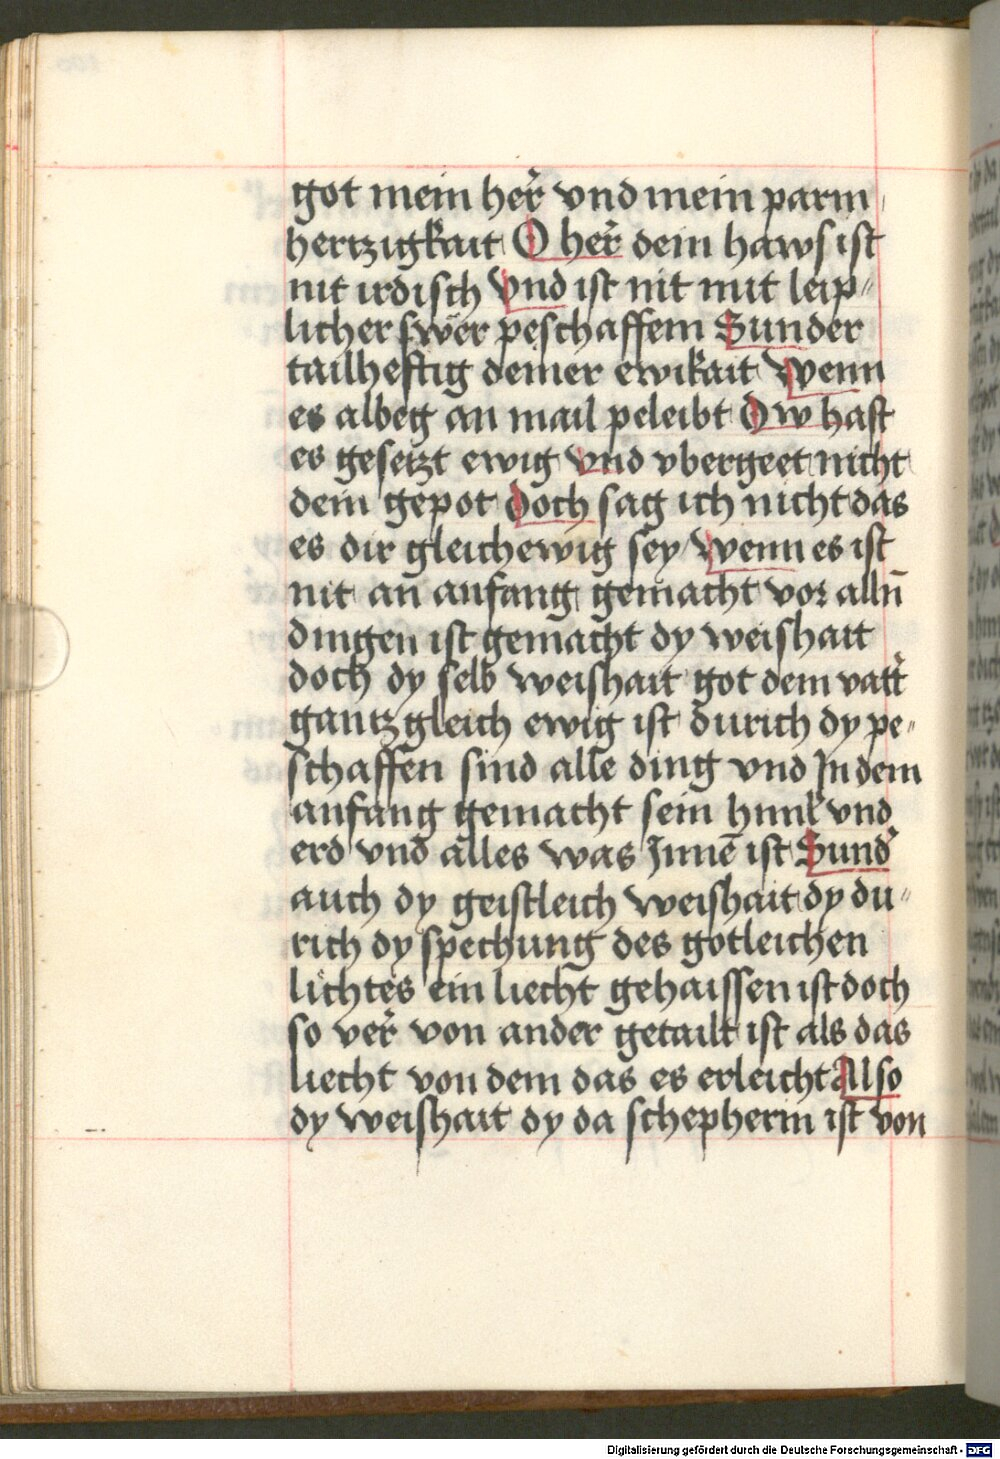 got mein her̄ vnd mein parm
hertzigkait O her̄ dein haws ist
nit irdisch Vnd ist nit mit leip⸗
licher swer peschaffem Sunder
tailheftig deiner ewikait Wenn
es albeg an mail peleibt Dw hast
es gesetzt ewig vnd vbergeet nicht
dein gepot Doch sag ich nicht das
es dir gleichewig sey Wenn es ist
nit an anfang gemacht vor alln̄
dingen ist gemacht dy weishait
doch dy selb weishait got dem vatt̄
gantz gleich ewig ist durich dy pe⸗
schaffen sind alle ding vnd In dem
anfang gemacht sein himl̄ vnd
erd vnd alles was Innē ist Sund̄
auch dy geistleich weishait dy du⸗
rich dy spechung des gotleichen
lichtes ein liecht gehaissen ist doch
so ver̄ von ander getailt ist als das
liecht von dem das es erleicht Also
dy weishait dy da schepherin ist von
Digitalisierung gefördert durch die Deutsche Forschungsgemeinschaft - DFG